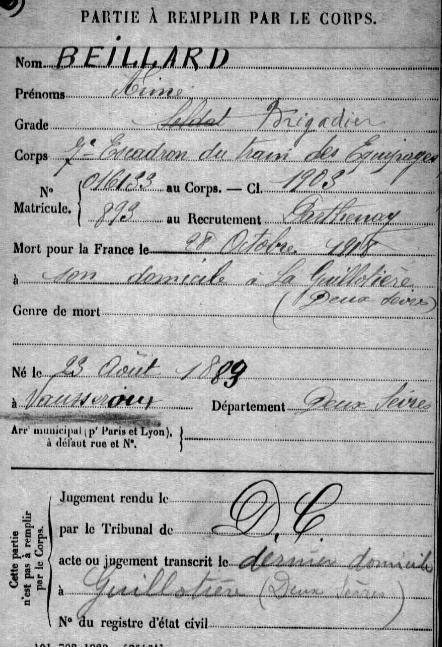 PARTIE À REMPLIR PAR LE CORPS.
Nom BEILLARD
Prénoms Aimé
Grade Soldat Brigadier
Corps 7e Escadron du train des Equipages
N° Matricule. { 016133 au Corps. — Cl. 1903
893 au Recrutement Parthenay
Mort pour la France le 28 Octobre 1918
à son domicile à La Guillotière
(Deux Sèvres)
Genre de mort
Né le 23 Août 1889
à Vausseroux Département Deux Sèvres
Arrt municipal (pr Paris et Lyon), à défaut rue et N°. }
Cette partie n'est pas à remplir par le Corps.
Jugement rendu le
par le Tribunal de D. C.
acte ou jugement transcrit le dernier domicile
à Guillotière (Deux Sèvres)
N° du registre d'état civil